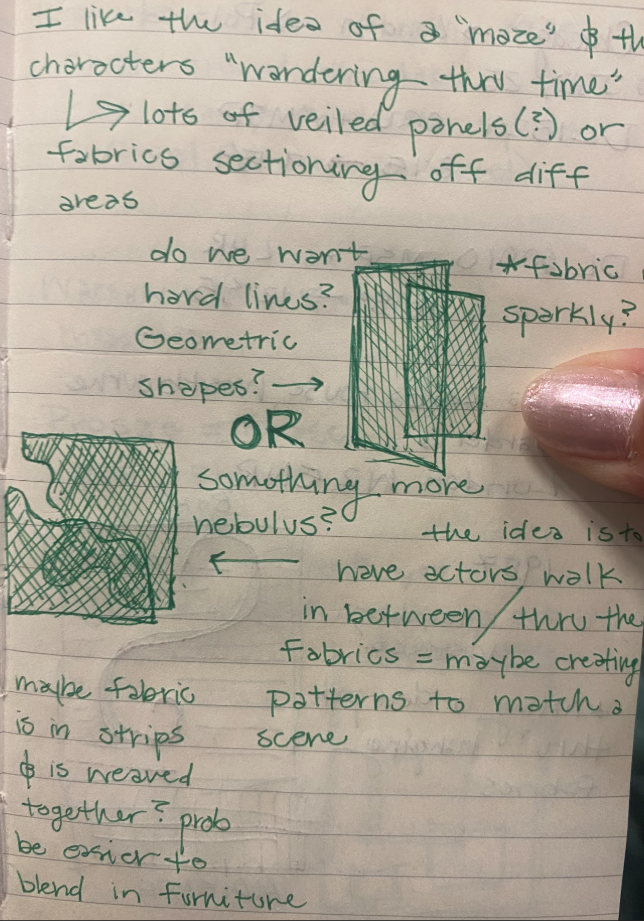 I like the idea of a "maze" & th
characters "wandering thru time"
↳ lots of veiled panels(?) or
fabrics sectioning off diff
areas
do we want
hard lines?
Geometric
shapes? →
*fabric
sparkly?
OR
something more
nebulus?
←
the idea is to
have actors walk
in between/thru the
fabrics = maybe creating
patterns to match a
scene
maybe fabric
is in strips
& is weaved
together? prob
be easier to
blend in furniture